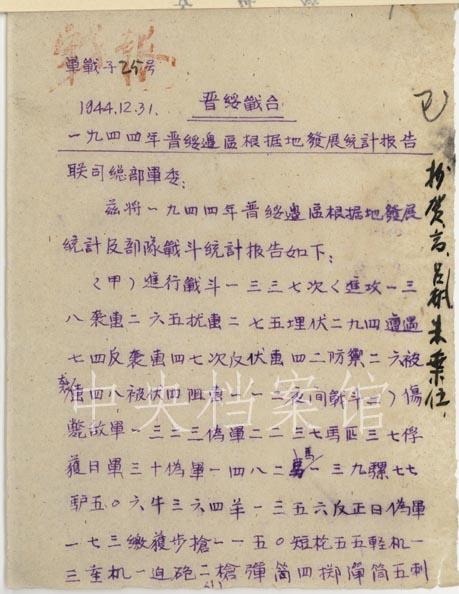 戰報
軍戰子25号
1944.12.31.
晋綏戰合
一九四四年晋綏邊區根据地發展統計报告
联司總部軍委：
兹將一九四四年晋綏邊區根据地發展
統計及部隊戰斗統計报告如下：
（甲）進行戰斗一三三七次（進攻一三
八袭击二六五扰击二七五埋伏二九四遭遇
七四反袭击四七次反伏击四二防禦二六被
袭击四八被伏四阻击一一二夜间战斗二）傷
斃敌軍一三二三偽軍二二三七馬匹三七俘
獲日軍三十偽軍一四八二馬一三九騾七七
驴五〇六牛三六四羊一三五六反正日偽軍
一七三繳獲步槍一一五〇短枪五五輕机一
三重机一迫砲二槍彈筒四掷彈筒五刺
中央档案馆